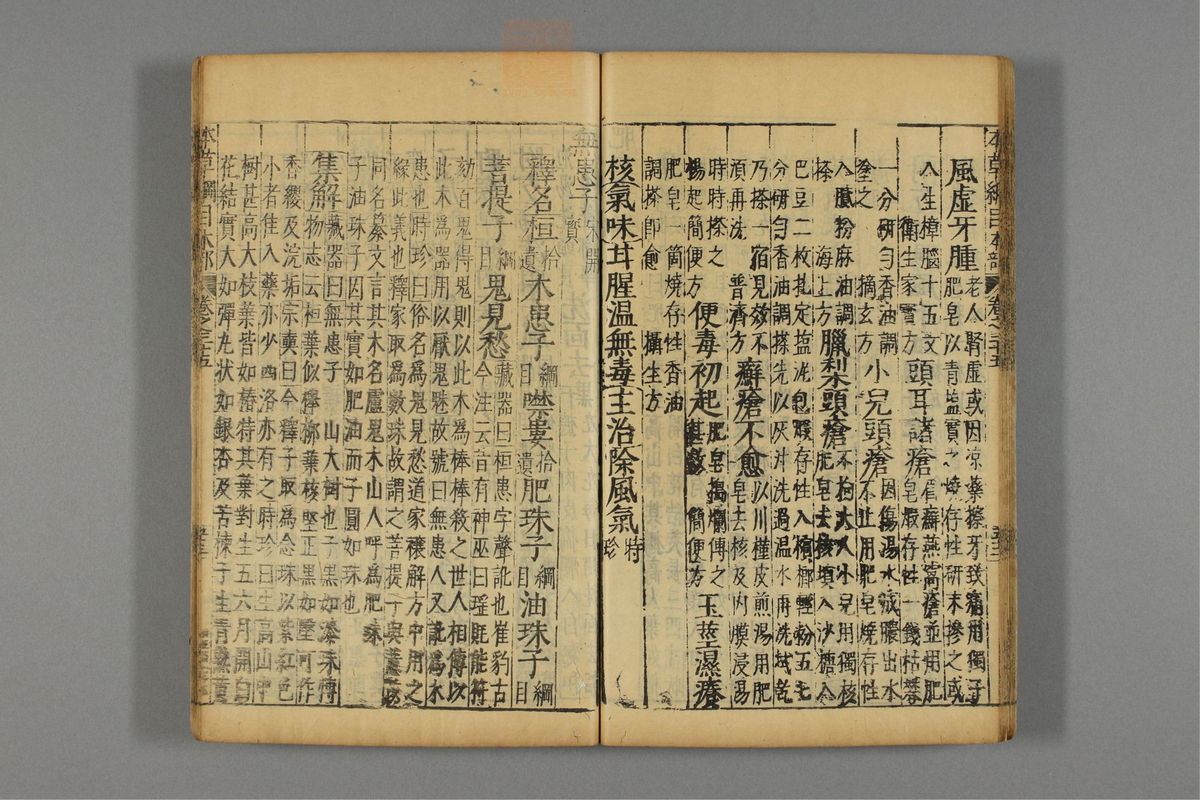 本草綱目木部 卷之三十五
風虛牙腫老人腎虛或因凉藥擦牙致痛用獨子
肥皂以青盐實之燒存性研末摻之或
入生樟腦十五文
衛生家寶方 頭耳諸瘡眉癬燕窩瘡並用肥
皂煅存性一錢枯礬
一分研勻香油調
塗之 摘玄方 小兒頭瘡因傷湯水成膿出水
不止用肥皂燒存性
入膩粉麻油調
搽 海上方 臘梨頭瘡不拘大人小兒用獨核
肥皂去核填入沙糖入
巴豆二枚扎定盐泥包煅存性入檳榔輕粉五七
分研勻香油調搽先以灰汁洗過温水再洗拭乾
乃搽一宿見效不
須再洗 普濟方 癬瘡不愈以川槿皮煎湯用肥
皂去核及內膜浸湯
時時搽之
楊起簡便方 便毒初起肥皂搗爛傅之
甚效 簡便方 玉莖濕痒
肥皂一箇燒存性香油
調搽即愈 攝生方
核氣味甘腥温無毒主治除風氣時珍
無患子宋開寶
釋名桓拾遺木患子綱目噤婁拾遺肥珠子綱目油珠子綱目
菩提子綱目鬼見愁藏器曰桓患字聲訛也崔豹古
今注云昔有神巫曰瑶㲯能符
劾百鬼得鬼則以此木為棒棒殺之世人相傳以
此木為器用以厭鬼魅故號曰無患人又訛為木
患也時珍曰俗名為鬼見愁道家禳解方中用之
緣此義也釋家取為數珠故謂之菩提子與薏苡
同名纂文言其木名盧鬼木山人呼為肥珠
子油珠子因其實如肥油而子圓如珠也
集解藏器曰無患子山大樹也子黑如漆珠博
物志云桓葉似櫸柳葉核堅正黑如瑿可作
香纓及浣垢宗奭曰今釋子取為念珠以紫紅色
小者佳入藥亦少西洛亦有之時珍曰生高山中
樹甚高大枝葉皆如椿特其葉對生五六月開白
花結實大如彈丸狀如銀杏及苦楝子生青熟黃
本草綱目木部 卷之三十五